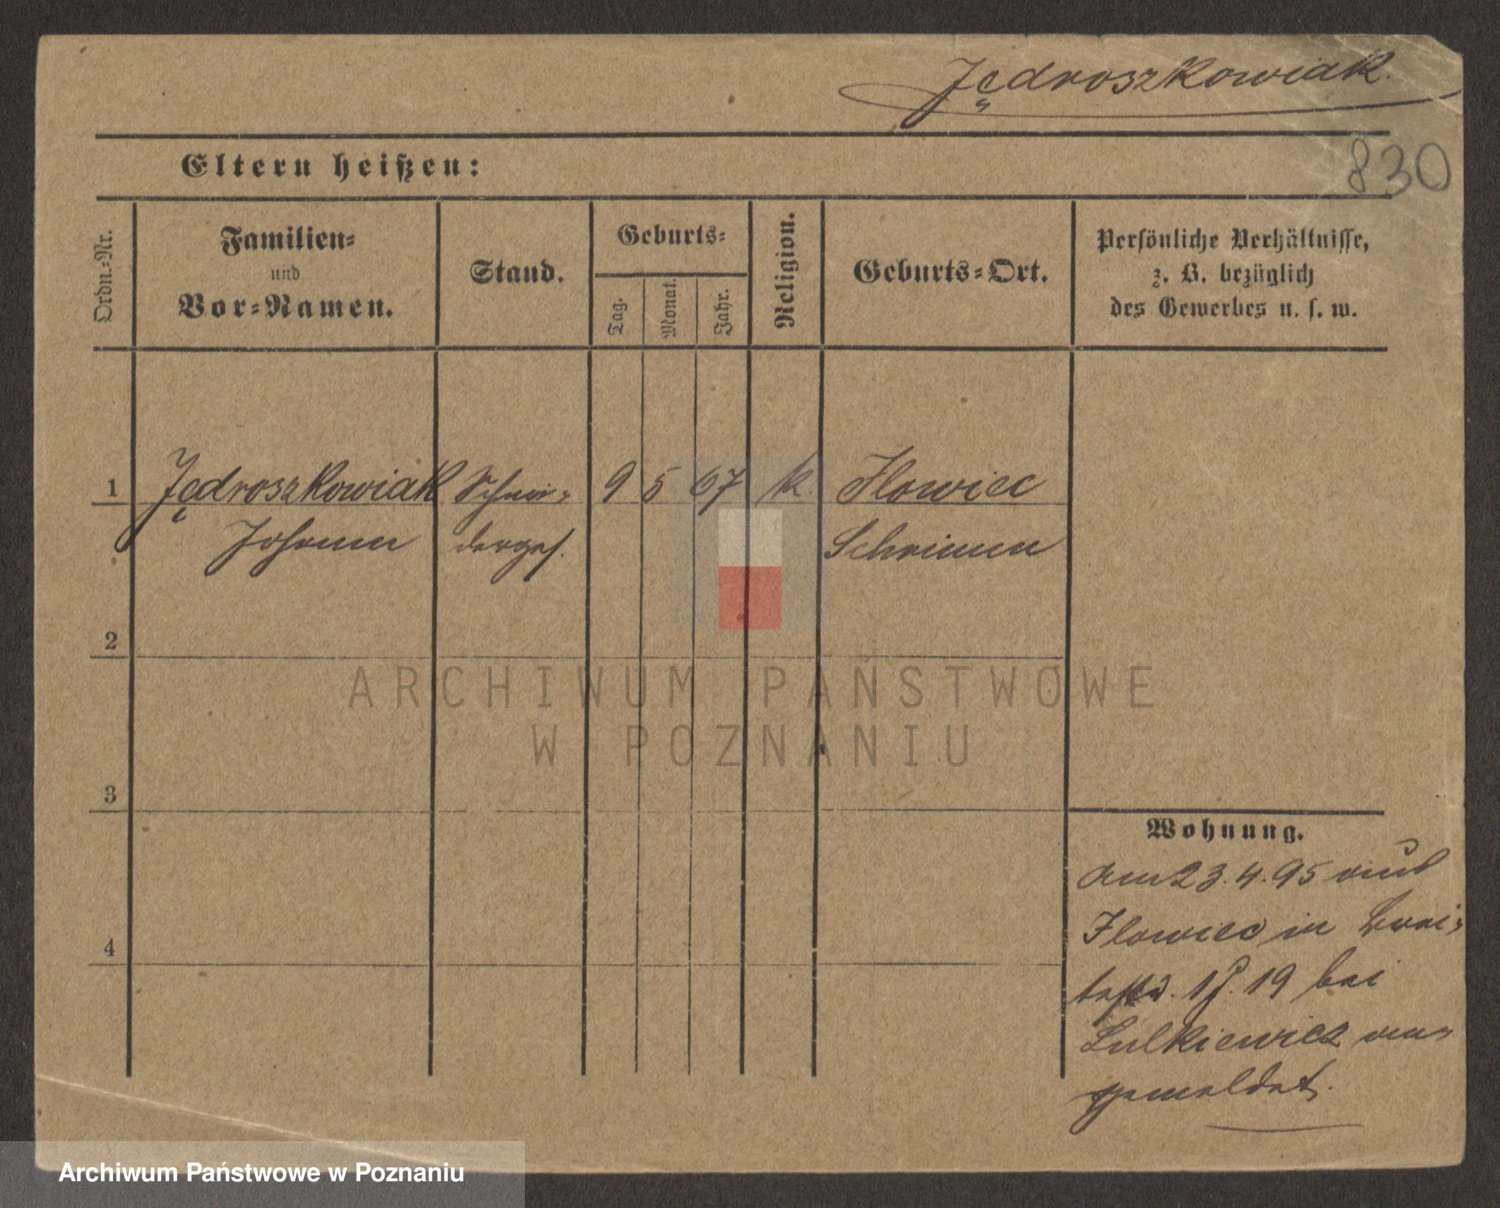 Jędroszkowiak.
830
Eltern heißen:
Ordn.-Nr.
Familien-
und
Vor-Namen.
Stand.
Geburts-
Tag.
Monat.
Jahr.
Religion.
Geburts-Ort.
Persönliche Verhältnisse,
z. B. bezüglich
des Gewerbes u. s. w.
1 Jędroszkowiak Schnei- 9 5 67 k. Ilowiec
Johann derges. Schrimm
2
3
4
Wohnung.
am 23.4.95 aus
Ilowiec in Brei-
19 bei
Lulkiewicz an-
gemeldet.
ARCHIWUM PAŃSTWOWE
W POZNANIU
Archiwum Państwowe w Poznaniu